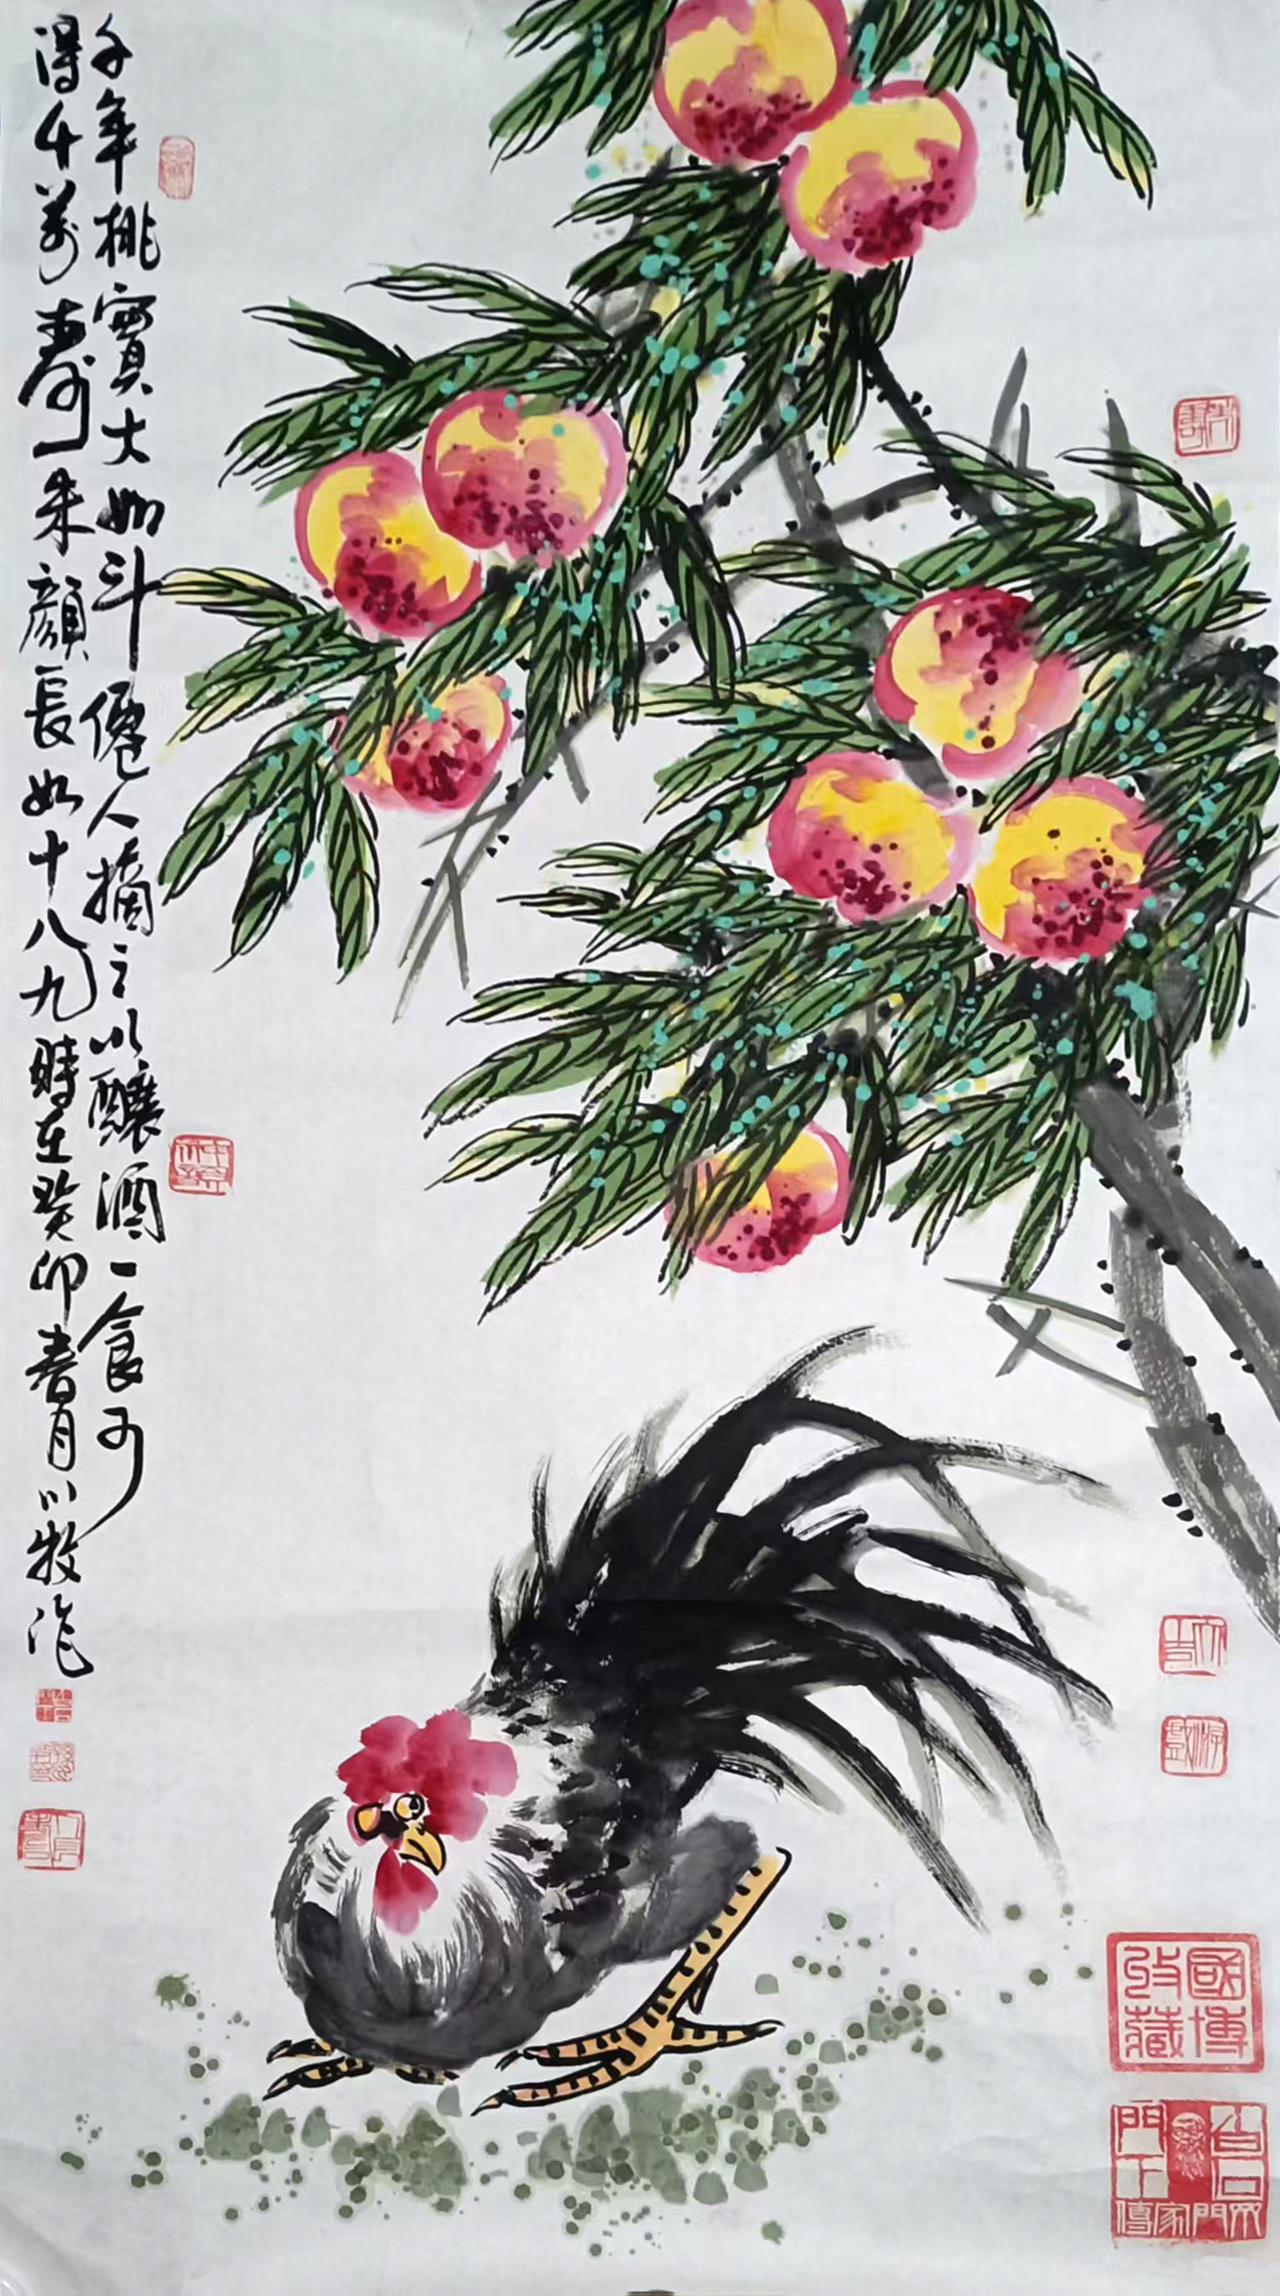 千年桃實大如斗僊人摘之以釀酒一食可
得千萬壽朱顏長如十八九時在癸卯春月川牧作
國博
收藏